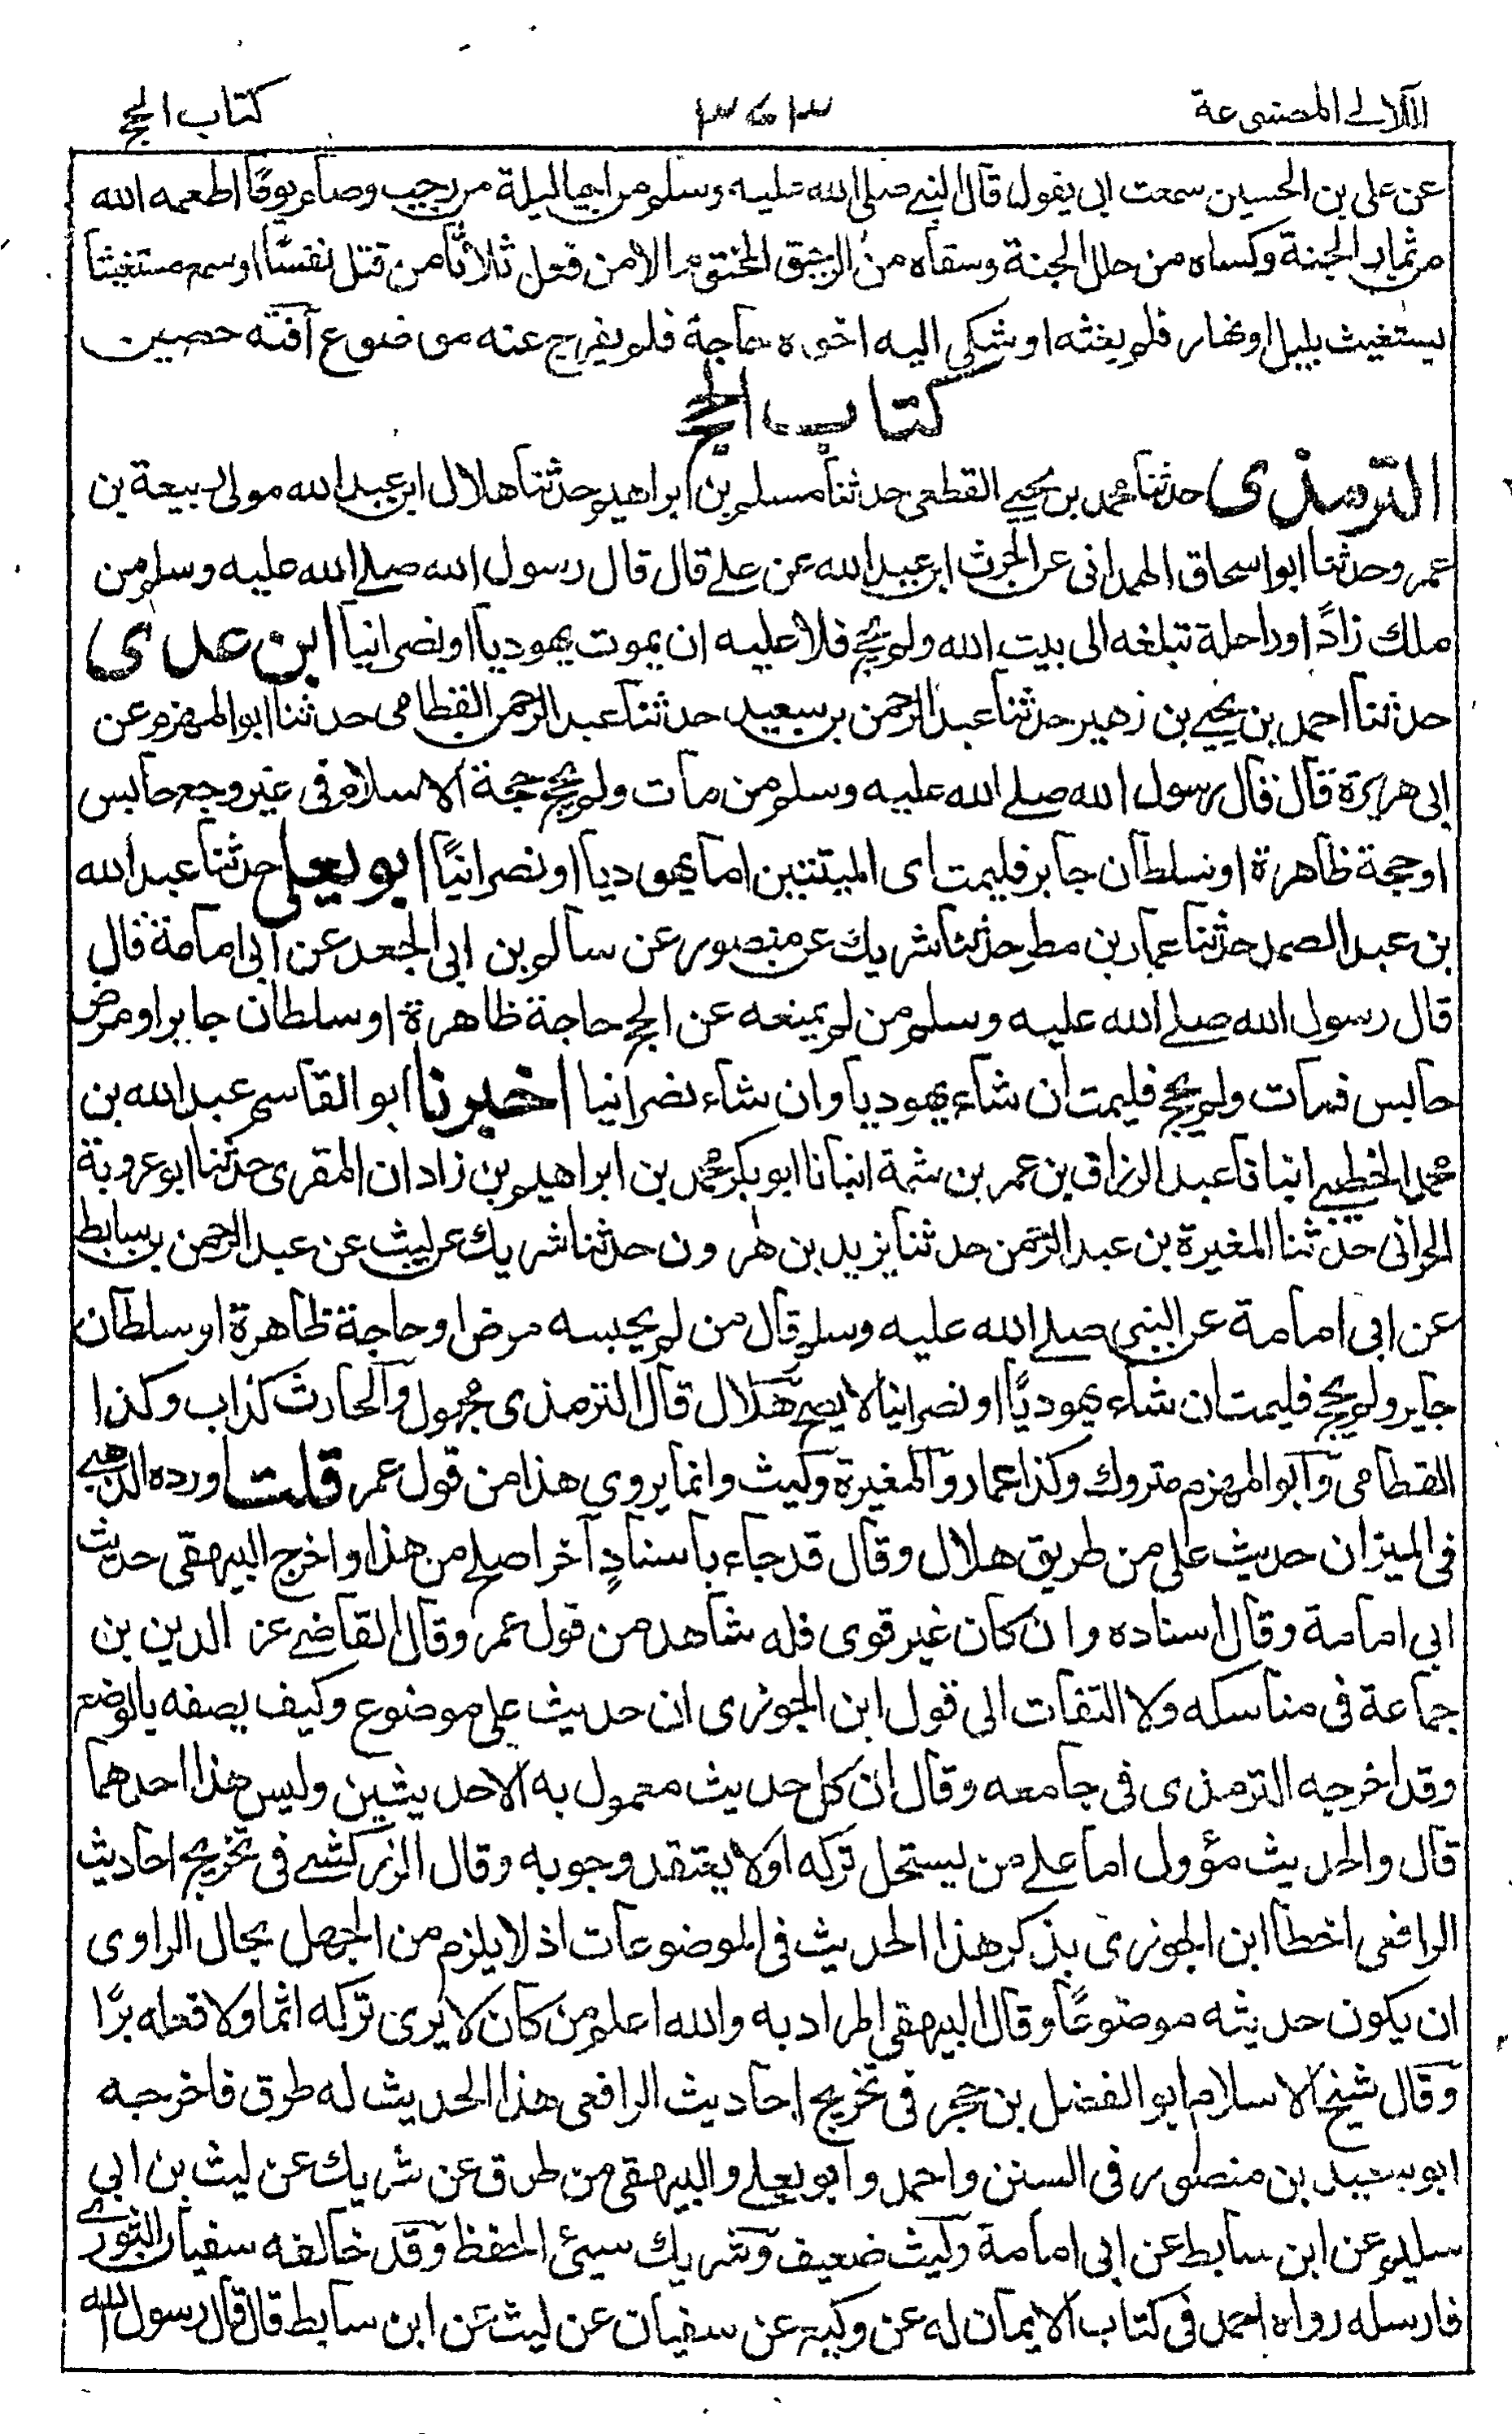 اللآلى المصنوعة ٣٦٣ كتاب الحج
عن على بن الحسين سمعت ابى يقول قال النبى صلى الله عليه وسلم من احيا ليلة من رجب وصام يوما اطعمه الله
من ثمار الجنة وكساه من حلل الجنة وسقاه من الرحيق المختوم الا من فعل ثلاثا من قتل نفسًا او سمع مستغيثا
يستغيث بليل او نهار فلم يغثه او شكى اليه اخوه حاجة فلم يفرج عنه موضوع آفته حصين
كتاب الحج
الترمذى حدثنا محمد بن يحيى القطعى حدثنا مسلم بن ابراهيم حدثنا هلال ابن عبد الله مولى ربيعة بن
عمرو حدثنا ابو اسحاق الهمدانى عن الحرث ابن عبد الله عن على قال قال رسول الله صلى الله عليه وسلم من
ملك زادًا وراحلة تبلغه الى بيت الله ولم يحج فلا عليه ان يموت يهوديا او نصرانيا ابن عدى
حدثنا احمد بن يحيى بن زهير حدثنا عبد الرحمن بن سعيد حدثنا عبد الرحمن القطامى حدثنا ابو المهزم عن
ابى هريرة قال قال رسول الله صلى الله عليه وسلم من مات ولم يحج حجة الاسلام فى غير وجع حابس
او حجة ظاهرة او سلطان جابر فليمت اى الميتتين اما يهوديا او نصرانيًا ابو يعلى حدثنا عبد الله
بن عبد الصمد حدثنا عمار بن مطر حدثنا شريك عن منصور عن سالم بن ابى الجعد عن ابى امامة قال
قال رسول الله صلى الله عليه وسلم من لم يمنعه عن الحج حاجة ظاهرة او سلطان جابر او مرض
حابس فمات ولم يحج فليمت ان شاء يهوديا وان شاء نصرانيا اخبرنا ابو القاسم عبد الله بن
محمد الخطيبى انبانا عبد الرزاق بن عمر بن شمة انبانا ابو بكر محمد بن ابراهيم بن زادان المقرى حدثنا ابو عروبة
الحرانى حدثنا المغيرة بن عبد الرحمن حدثنا يزيد بن هٰرون حدثنا شريك عن ليث عن عبد الرحمن بن سابط
عن ابى امامة عن النبى صلى الله عليه وسلم قال من لم يحبسه مرض او حاجة ظاهرة او سلطان
جابر ولم يحج فليمت ان شاء يهوديًا او نصرانيا لا يصح هلال قال الترمذى مجهول والحارث كذاب وكذا
القطامى وابو المهزم متروك وكذا عمار والمغيرة وليث وانما يروى هذا من قول عمر قلت اورده الذهبى
فى الميزان حديث على من طريق هلال وقال قد جاء باسنادٍ آخر اصلح من هذا واخرج البيهقى حديث
ابى امامة وقال اسناده وان كان غير قوى فله شاهد من قول عمر وقال القاضى عز الدين بن
جماعة فى مناسكه ولا التفات الى قول ابن الجوزى ان حديث على موضوع وكيف يصفه بالوضع
وقد اخرجه الترمذى فى جامعه وقال ان كل حديث معمول به الا حديثين وليس هذا احدهما
قال والحديث مؤول اما على من يستحل تركه او لا يعتقد وجوبه وقال الزركشى فى تخريج احاديث
الرافعى اخطأ ابن الجوزى بذكر هذا الحديث فى الموضوعات اذ لا يلزم من الجهل بحال الراوى
ان يكون حديثه موضوعًا وقال البيهقى المراد به والله اعلم من كان لا يرى تركه اثما ولا فعله برًا
وقال شيخ الاسلام ابو الفضل بن حجر فى تخريج احاديث الرافعى هذا الحديث له طرق فاخرجه
ابو سعيد بن منصور فى السنن واحمد وابو يعلى والبيهقى من طرق عن شريك عن ليث بن ابى
سليم عن ابن سابط عن ابى امامة وليث ضعيف وشريك سيئ الحفظ وقد خالفه سفيان الثورى
فارسله رواه احمد فى كتاب الايمان له عن وكيع عن سفيان عن ليث عن ابن سابط قال قال رسول الله